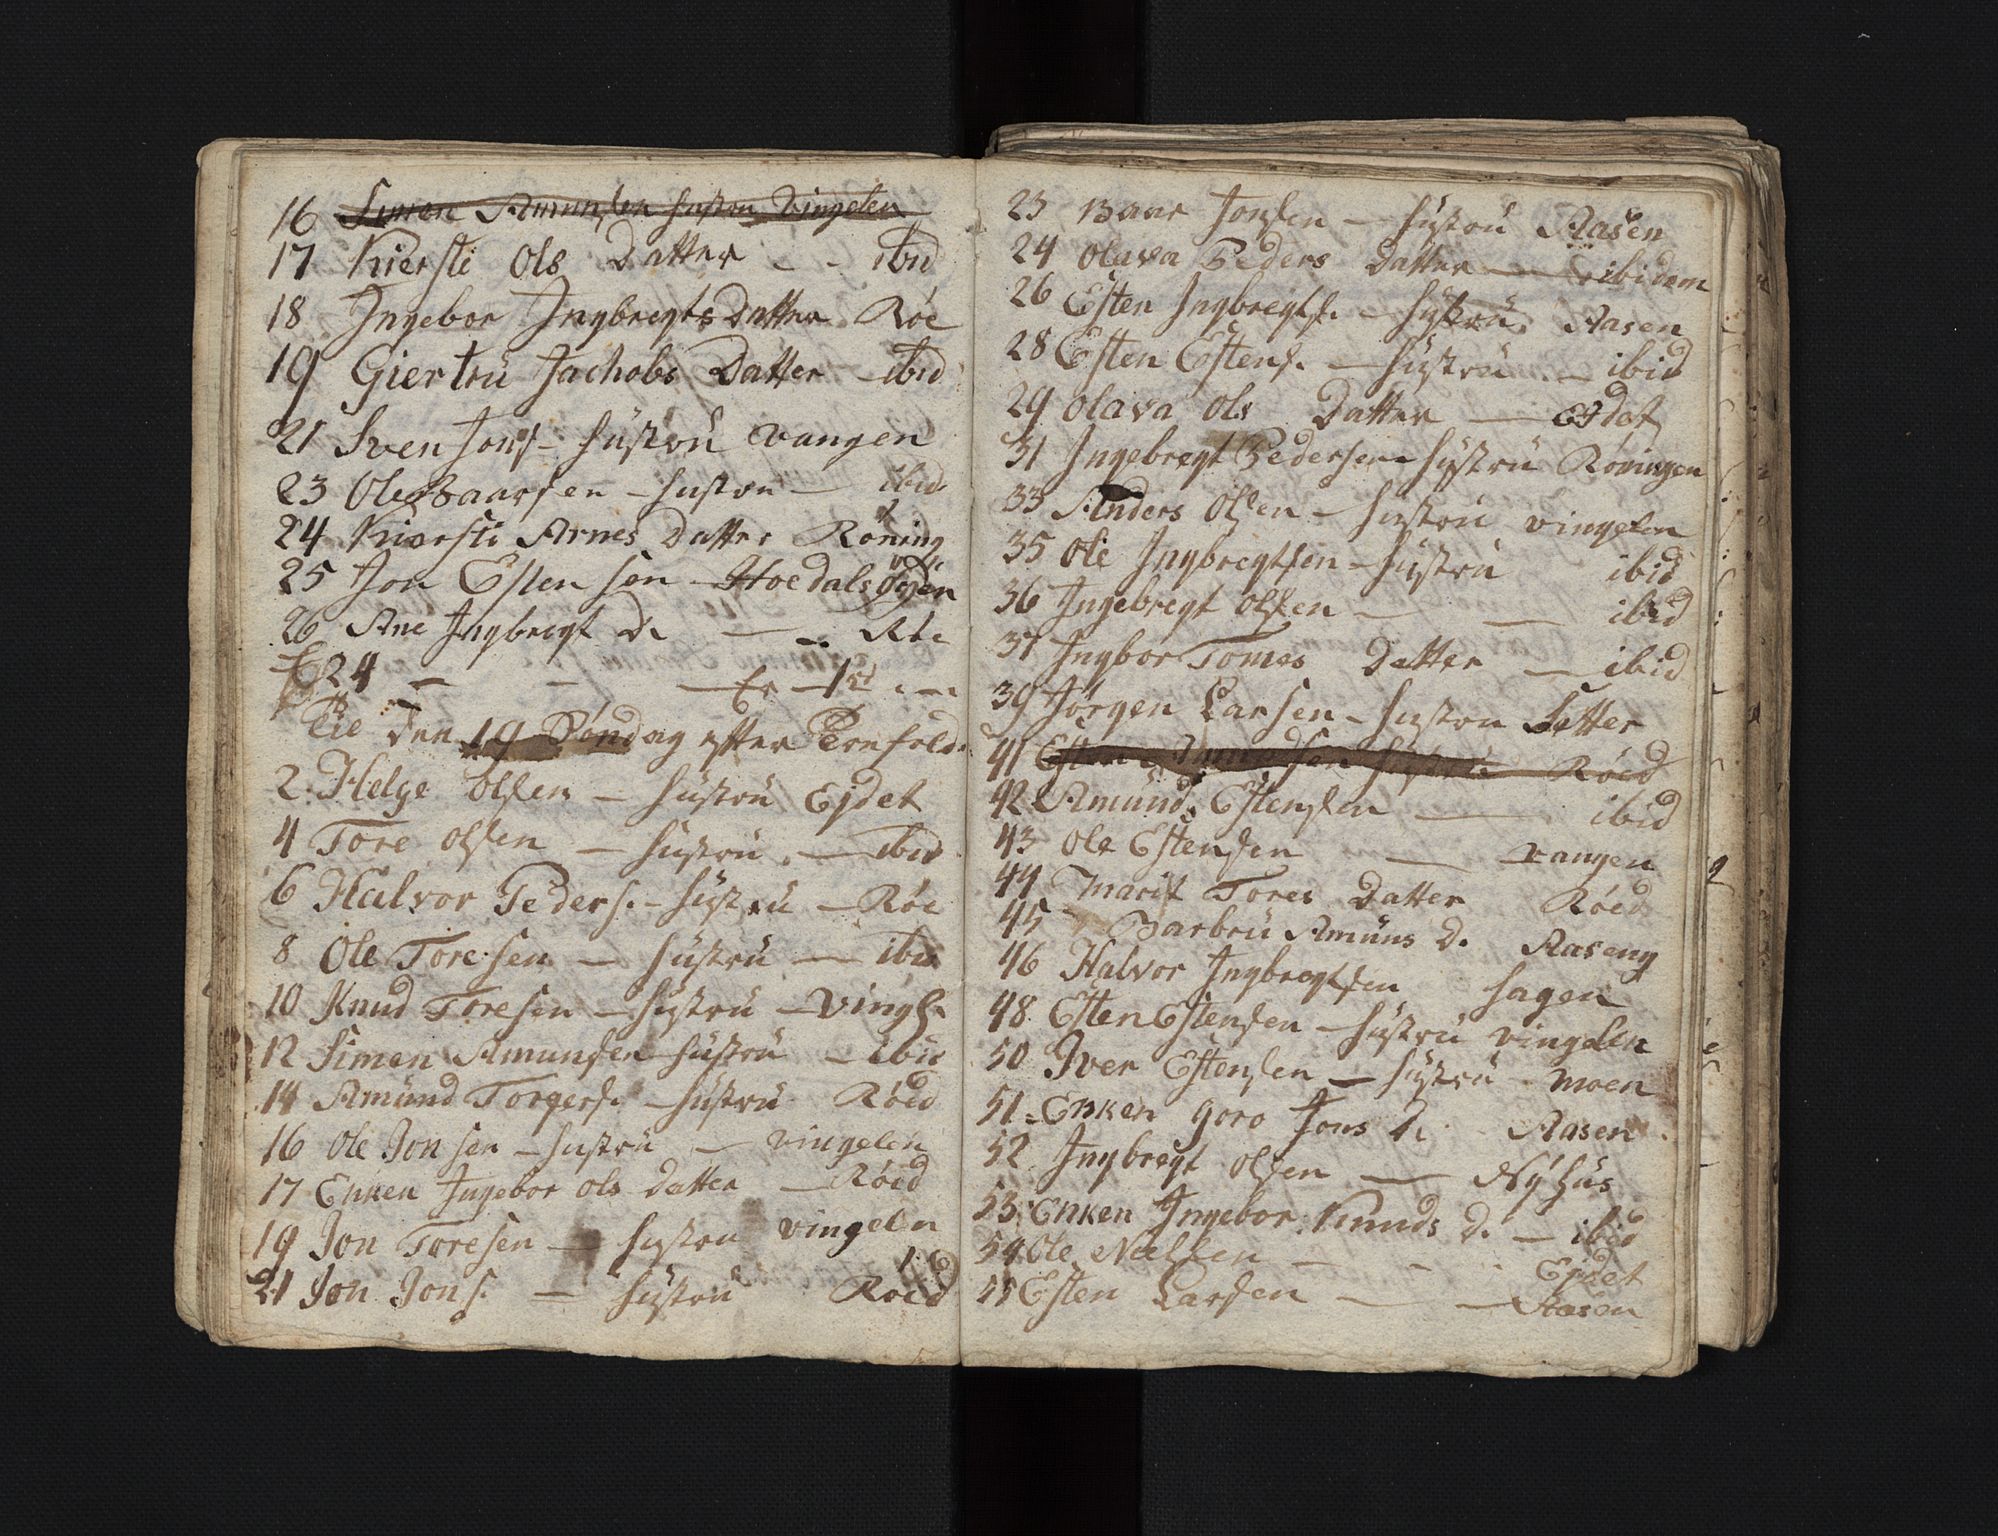 16 Simen Amunsen hustru Vingelen
17 Kiersti Ols Datter - - ibid
18 Ingebor Ingbregts Datter Røe
19 Giertru Jachobs Datter - ibid
21 Sven Jons - hustru vangen
23 Ole Baarsen - hustru - ibid
24 Kiersti Arnes Datter Røning
25 Jon Estensen - Hoedalsøyen
26 Ane Ingbregt D. - - Røe
24 - - - Er - 1
Til den 19 Søndag efter Trefold.
2 Helge Olsen - hustru Ejdet
4 Tore Olsen - hustru. - ibid
6 Halvor Peders. - hustru - Røe
8 Ole Toresen - hustru - ibid
10 Knud Toresen - hustru - Vingl.
12 Simen Amunsen hustru - ibid
14 Amund Torgers. - hustru Røed
16 Ole Jonsen - hustru - vingelen
17 Enken Ingebor Ols Datter - Røed
19 Jon Toresen - hustru vingeln
21 Jon Jons. - hustru Røed
23 Baar Jonsen - hustru Aasen
24 Olava Peders Datter - ibidem
26 Esten Ingbregts. - hustru. Aasen
28 Esten Estens. - hustru - ibid
29 Olava Ols Datter - Ejdet
31 Ingebregt Pedersen hustru Røningen
33 Anders Olsen - hustru vingelen
35 Ole Ingbregtsen - hustru ibid
36 Ingebregt Olsen - - ibid
37 Ingbor Tomes Datter - ibid
39 Jørgen Larsen - hustru Setter
41 Esten Amundsen hustru Røed
42 Amund Estensen - ibid
43 Ole Estensen - vangen
44 Marit Tores Datter Røed
45 Barbru Amuns D. Aaseng
46 Halvor Ingbregtsen hagen
48 Esten Estensen - hustru vingelen
50 Iver Estensen - hustru moen
51 Enken Goro Jons D. Aasen
52 Ingbregt Olsen - Nÿhus
53 Enken Ingebor Knuds D. - ibid
54 Ole Nielsen - - Ejdet
55 Esten Larsen - - Aasen